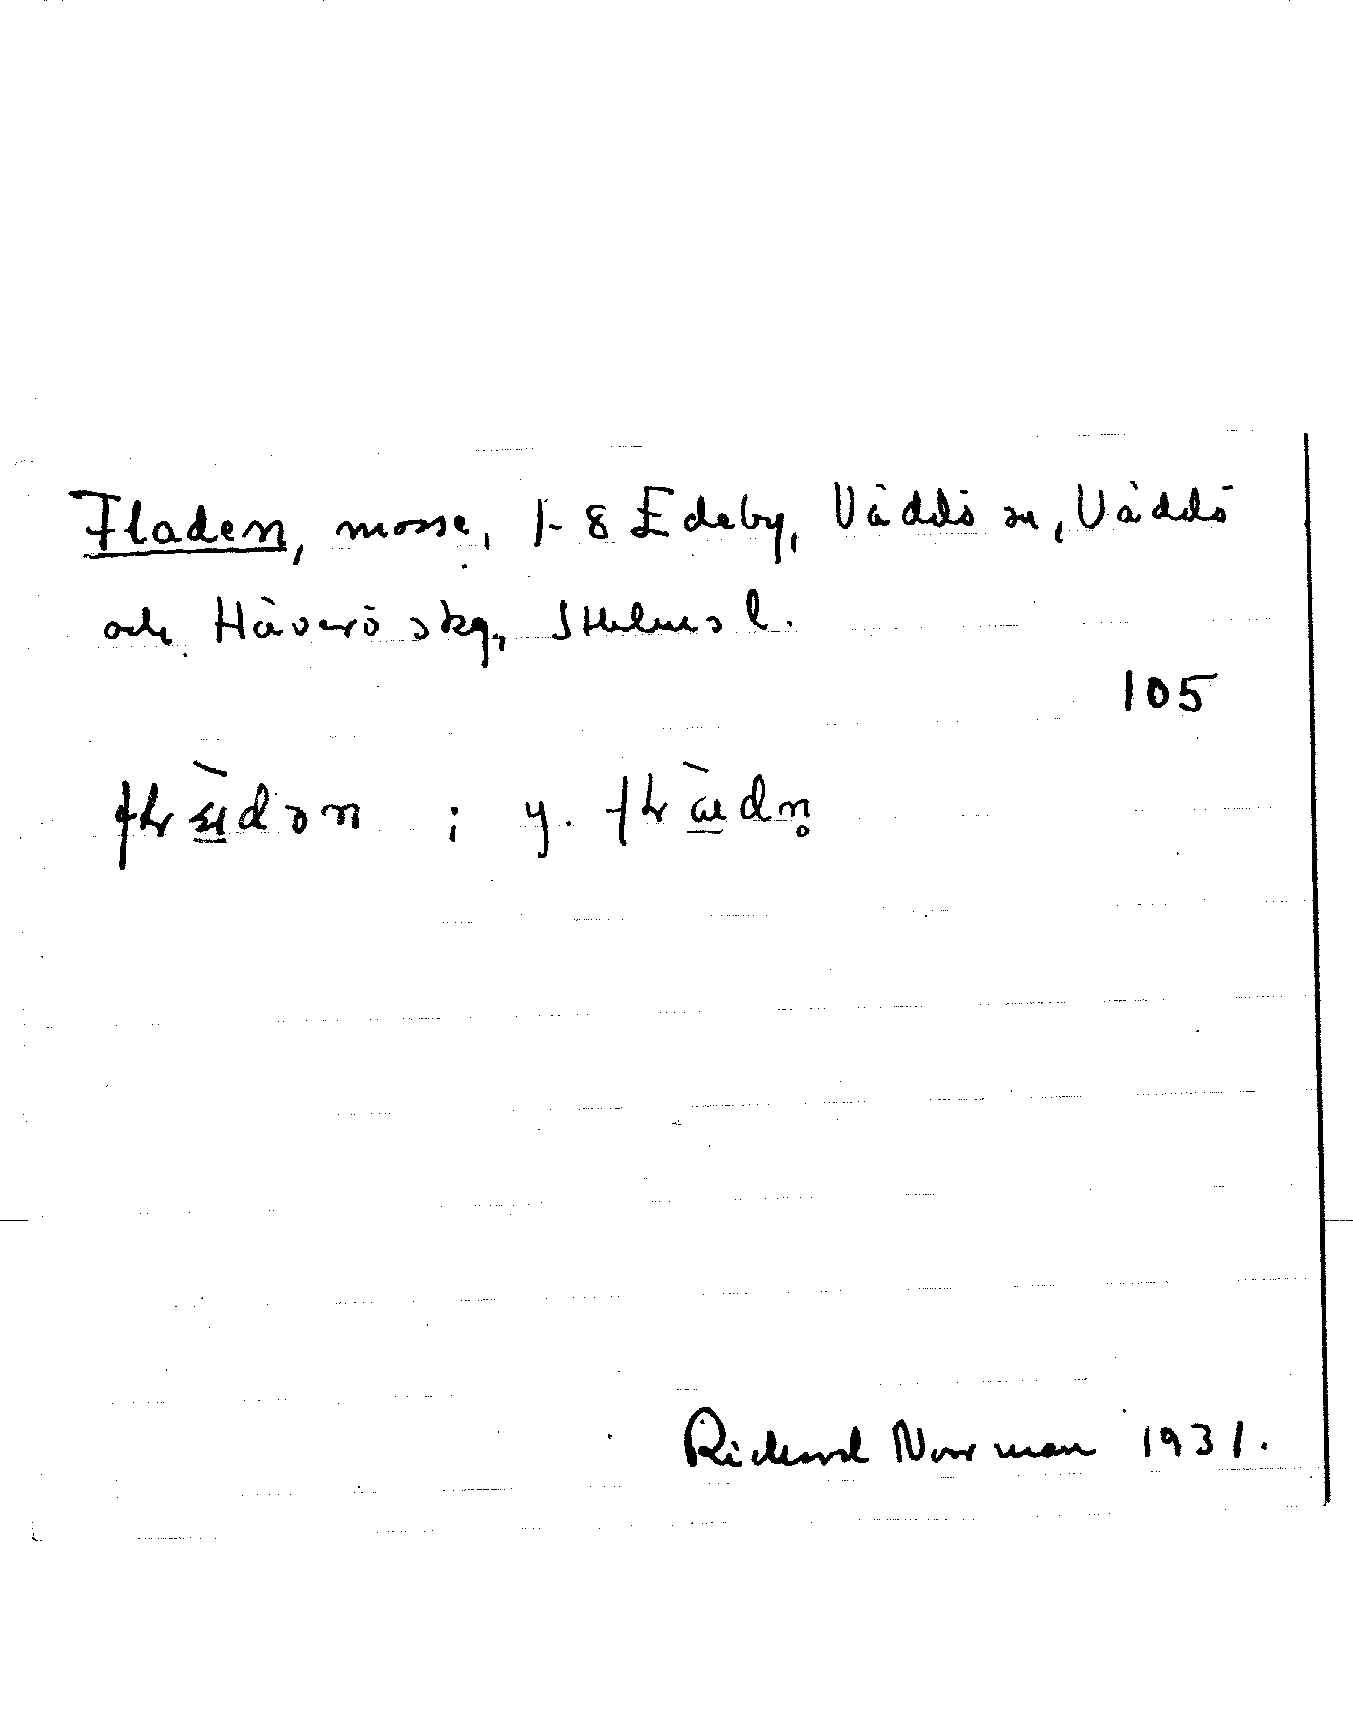 Fladen, mosse, 1-8 Edeby, Väddö sn, Väddö
och Häverö skg, Sthlms l.
105
; y.
Rickard Norrman 1931.